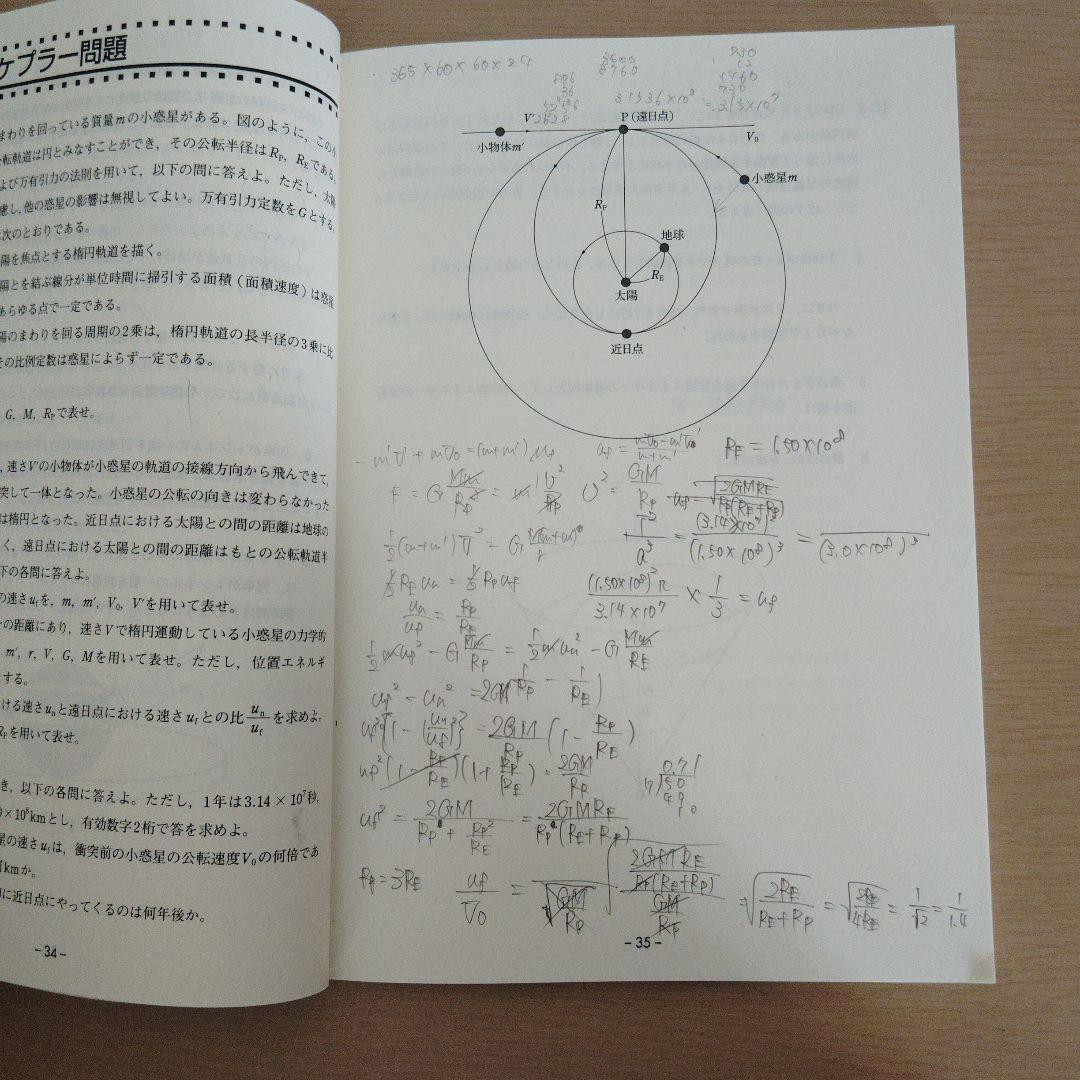 ケプラー問題
まわりを回っている質量mの小惑星がある。図のように、この小
公転軌道は円とみなすことができ、その公転半径はRP, REである。
よび万有引力の法則を用いて、以下の問に答えよ。ただし、太陽
慮し、他の惑星の影響は無視してよい。万有引力定数をGとする。
次のとおりである。
陽を焦点とする楕円軌道を描く。
陽とを結ぶ線分が単位時間に掃引する面積(面積速度)は惑星
あらゆる点で一定である。
陽のまわりを回る周期の2乗は、楕円軌道の長半径の3乗に比
その比例定数は惑星によらず一定である。
G, M, RPで表せ。
、速さVの小物体が小惑星の軌道の接線方向から飛んできて、
突して一体となった。小惑星の公転の向きは変わらなかった
は楕円となった。近日点における太陽との間の距離は地球の
く、遠日点における太陽との間の距離はもとの公転軌道半
下の各問に答えよ。
の速さufを、m, m′, V0, V′を用いて表せ。
の距離にあり、速さVで楕円運動している小惑星の力学的
m′, r, V, G, Mを用いて表せ。ただし、位置エネルギ
とする。
ける速さunと遠日点における速さufとの比un/ufを求めよ。
RPを用いて表せ。
き、以下の各問に答えよ。ただし、1年は3.14×10⁷秒,
×10⁸kmとし、有効数字2桁で答を求めよ。
星の速さufは、衝突前の小惑星の公転速度V0の何倍であ
kmか。
に近日点にやってくるのは何年後か。
-34-
365×60×60×24
8760
730
12
1460
730
3.1536×10⁸
=3.15×10⁷
2628
V′
P(遠日点)
V0
小物体m′
小惑星m
RP
地球
RE
太陽
近日点
-m′V′+mV0=(m+m′)uf
uf=mV0-m′V′/m+m′
RE=1.50×10⁸
F=G Mm/RP²=m U²/RP
U²=GM/RP
uf=√2GMRE/√RP(RE+RP)
T²/a³=(3.14×10⁷)²/(1.50×10⁸)³=/(3.0×10⁸)³
1/2(m+m′)V²=G M(m+m′)
1/2REun=1/2RPuf
(1.50×10⁸)²π/3.14×10⁷×1/3=uf
un/uf=RP/RE
1/2muf²-G Mm/RP=1/2mun²-G Mm/RE
uf²-un²=2GM(1/RP-1/RE)
uf²{1-(un/uf)²}=2GM/RP(1-RP/RE)
uf²(1-RP/RE)(1+RP/RE)=2GM/RP
0.71
50
49
uf²=2GM/RP+RP²/RE=2GMRE/RP(RE+RP)
RP=3RE
uf/V0=√2GMRE/RP(RE+RP)/√GM/RP=√2RE/RE+RP=√2RE/4RE=1/√2=1/1.4
-35-